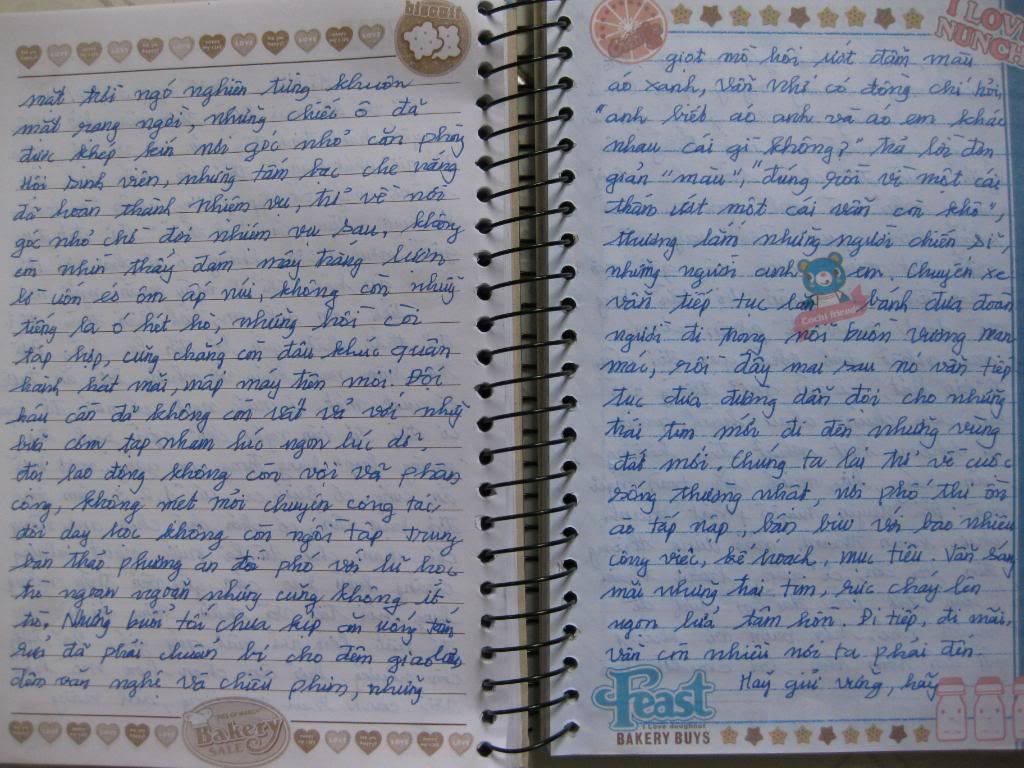 biscuit
mặt trời ngó nghiên từng khuôn
mặt rạng ngời, những chiếc ô đã
được khép kín nơi góc nhỏ căn phòng
Hội sinh viên, những tấm bạc che nắng
đã hoàn thành nhiệm vụ, trở về nơi
góc nhỏ chờ đợi nhiệm vụ sau, không
còn nhìn thấy đám mây trắng lượn
lờ uốn éo ôm ấp núi, không còn những
tiếng la ó hét hò, những hồi còi
tập hợp, cũng chẳng còn đâu khúc quân
hành hát mãi, mấp máy trên môi. Đội
hậu cần đã không còn vất vả với những
bữa cơm tạp nham lúc ngon lúc dở,
đội lao động không còn vội vã phân
công, không mệt mỏi chuyện công tác
đội dạy học không còn ngồi tập trung
bàn thảo phương án đối phó với lũ học
trò ngoan ngoãn nhưng cũng không ít
trò. Những buổi tối chưa kịp ăn uống tắm
rửa đã phải chuẩn bị cho đêm giao lưu
đêm văn nghệ và chiếu phim, những
Bakery
SALE
I LOVE
NUNCH
giọt mồ hôi ướt đẫm màu
áo xanh, vẫn nhớ có đồng chí hỏi
"anh biết áo anh và áo em khác
nhau cái gì không?" trả lời đơn
giản "màu", "đúng rồi vì một cái
thấm ướt một cái vẫn còn khô",
thương lắm những người chiến sĩ,
những người anh em. Chuyến xe
vẫn tiếp tục lăn bánh đưa đoàn
người đi trong nỗi buồn vương man
mác, rồi đây mai sau nó vẫn tiếp
tục đưa đường dẫn đội cho những
trái tim mới đi đến những vùng
đất mới. Chúng ta lại trở về cuộc
sống thường nhật, nơi phố thị ồn
ào tấp nập, bận bịu với bao nhiêu
công việc, kế hoạch, mục tiêu. Vẫn sáng
mãi những trái tim, rực cháy lên
ngọn lửa tâm hồn. Đi tiếp, đi mãi,
vẫn còn nhiều nơi ta phải đến.
Hãy giữ vững, hãy
Feast
I Love doughnut
BAKERY BUYS